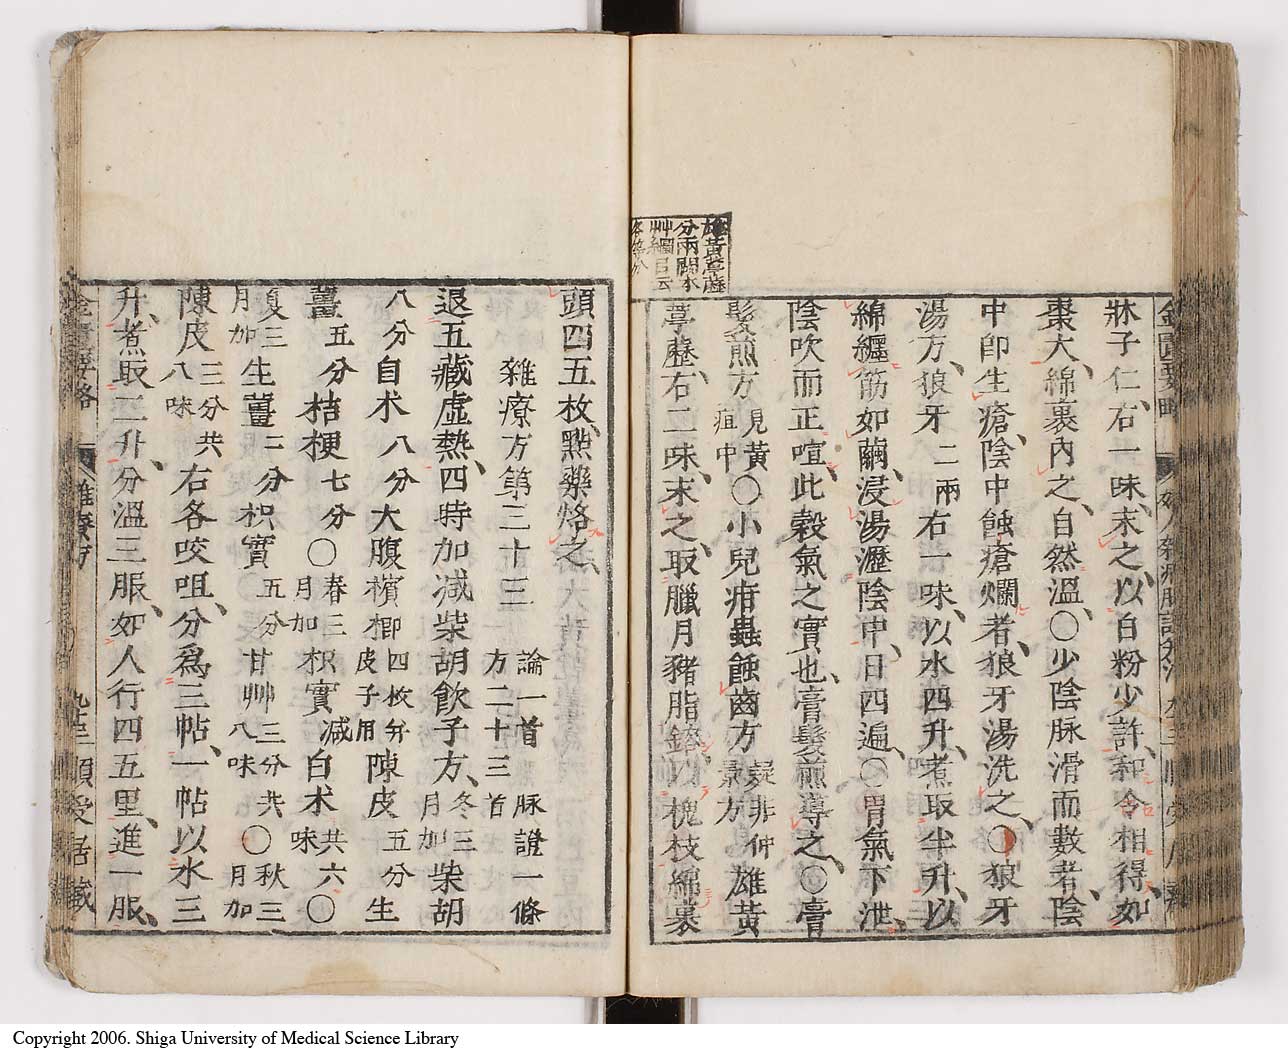 牀子仁、右一味、末之、以白粉少許、和令相得、如
棗大、綿裹內之、自然溫、〇少陰脉滑而數者、陰
中卽生瘡、陰中蝕瘡爛者、狼牙湯洗之、〇狼牙
湯方、狼牙二兩右一味、以水四升、煮取半升、以
綿纏筯如繭、浸湯瀝陰中、日四遍、〇胃氣下泄、
陰吹而正喧、此穀氣之實也、膏髮煎導之、〇膏
髮煎方見黃疸中〇小兒疳蟲蝕齒方疑非仲景方雄黃
葶藶、右二味、末之、取臘月豬脂鎔、以槐枝綿裹
雄黃葶藶
分兩闕本
艸綱目云
頭四五枚、點藥烙之、
雜療方第二十三 論一首 脉證一條 方二十三首
退五藏虛熱、四時加減柴胡飲子方、冬三月加柴胡
八分白朮八分大腹檳榔四枚并皮子用陳皮五分生
薑五分桔梗七分〇春三月加枳實減白朮共六味〇
夏三月加生薑三分枳實五分甘艸三分共八味〇秋三月加
陳皮三分共八味右各㕮咀、分爲三帖、一帖以水三
升、煮取二升、分溫三服、如人行四五里、進一服、
雜療方
九十二 順受居藏
Copyright 2006. Shiga University of Medical Science Library